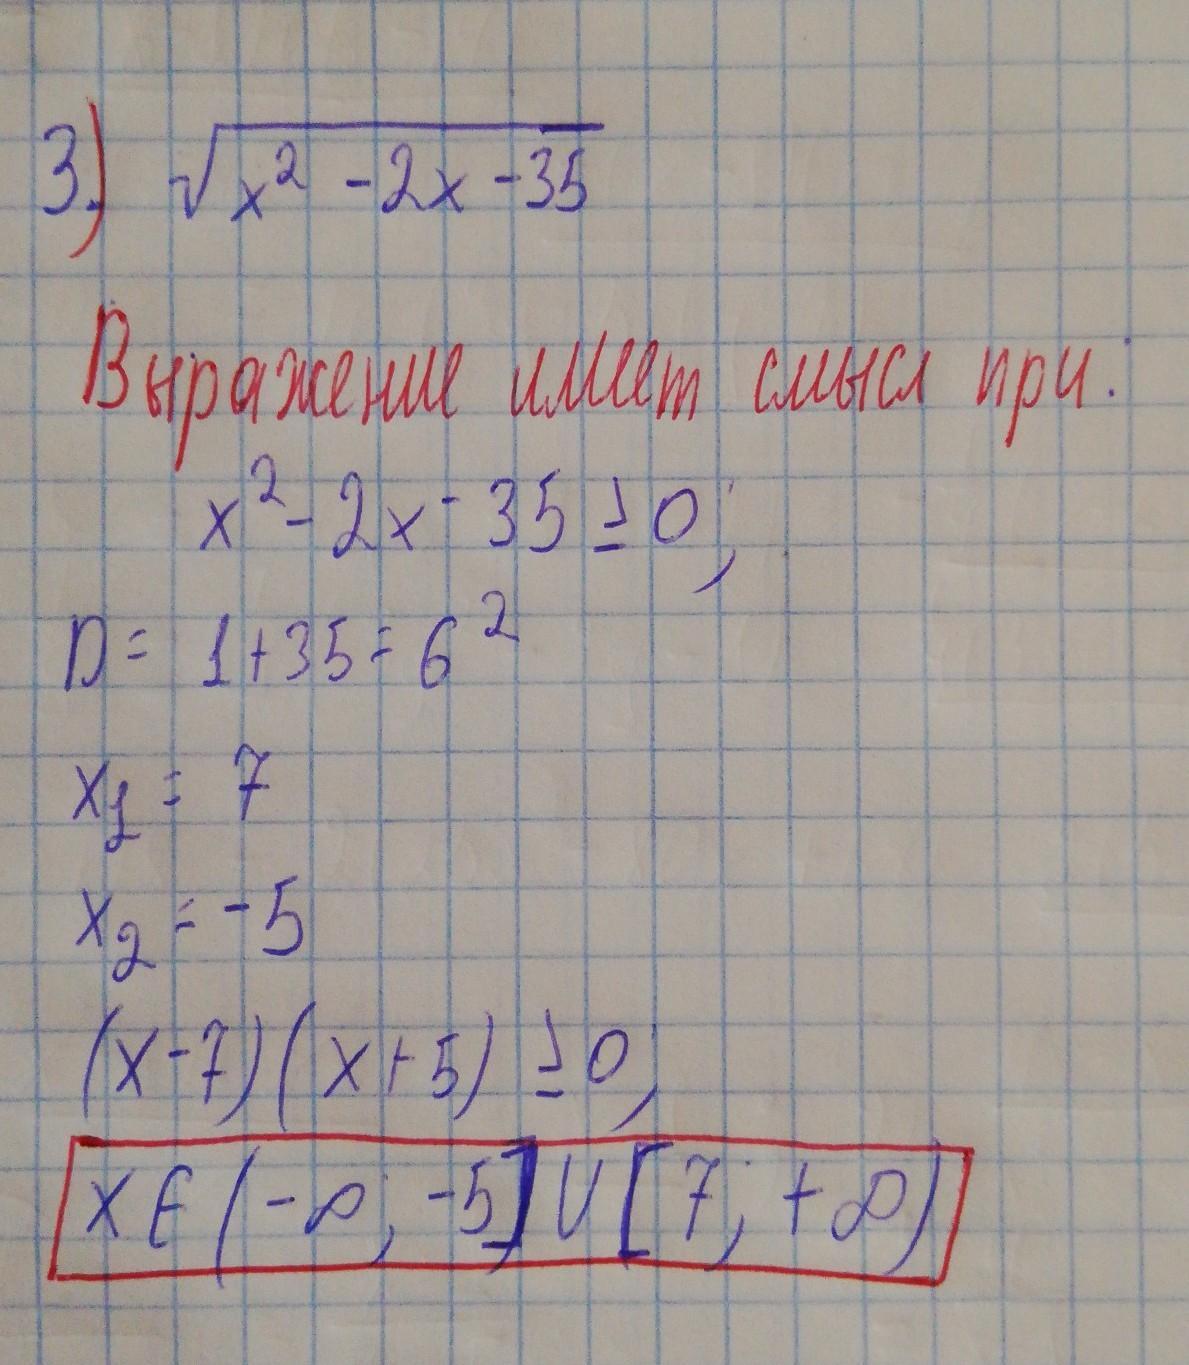 3.) √(x² - 2x - 35)
Выражение имеет смысл при:
x² - 2x - 35 ≥ 0;
D = 1 + 35 = 6²
x₁ = 7
x₂ = -5
(x - 7)(x + 5) ≥ 0;
x ∈ (-∞; -5] ∪ [7; +∞)